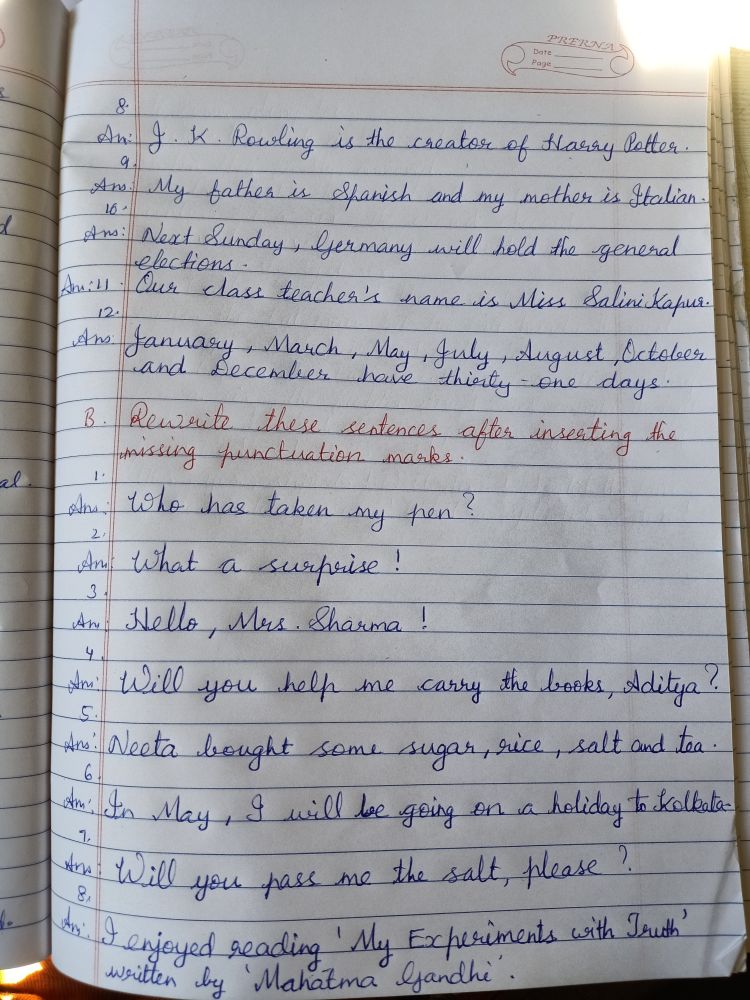 PRERNA
Date
Page
8.
Ans: J. K. Rowling is the creator of Harry Potter.
9.
Ans: My father is Spanish and my mother is Italian.
10.
Ans: Next Sunday, Germany will hold the general
elections.
Ans: 11. Our class teacher's name is Miss Salini Kapur.
12.
Ans: January, March, May, July, August, October
and December have thirty-one days.
B. Rewrite these sentences after inserting the
missing punctuation marks.
1.
Ans: Who has taken my pen?
2.
Ans: What a surprise!
3.
Ans: Hello, Mrs. Sharma!
4.
Ans: Will you help me carry the books, Aditya?
5.
Ans: Neeta bought some sugar, rice, salt and tea.
6.
Ans: In May, I will be going on a holiday to Kolkata.
7.
Ans: Will you pass me the salt, please?
8.
Ans: I enjoyed reading 'My Experiments with Truth'
written by 'Mahatma Gandhi'.